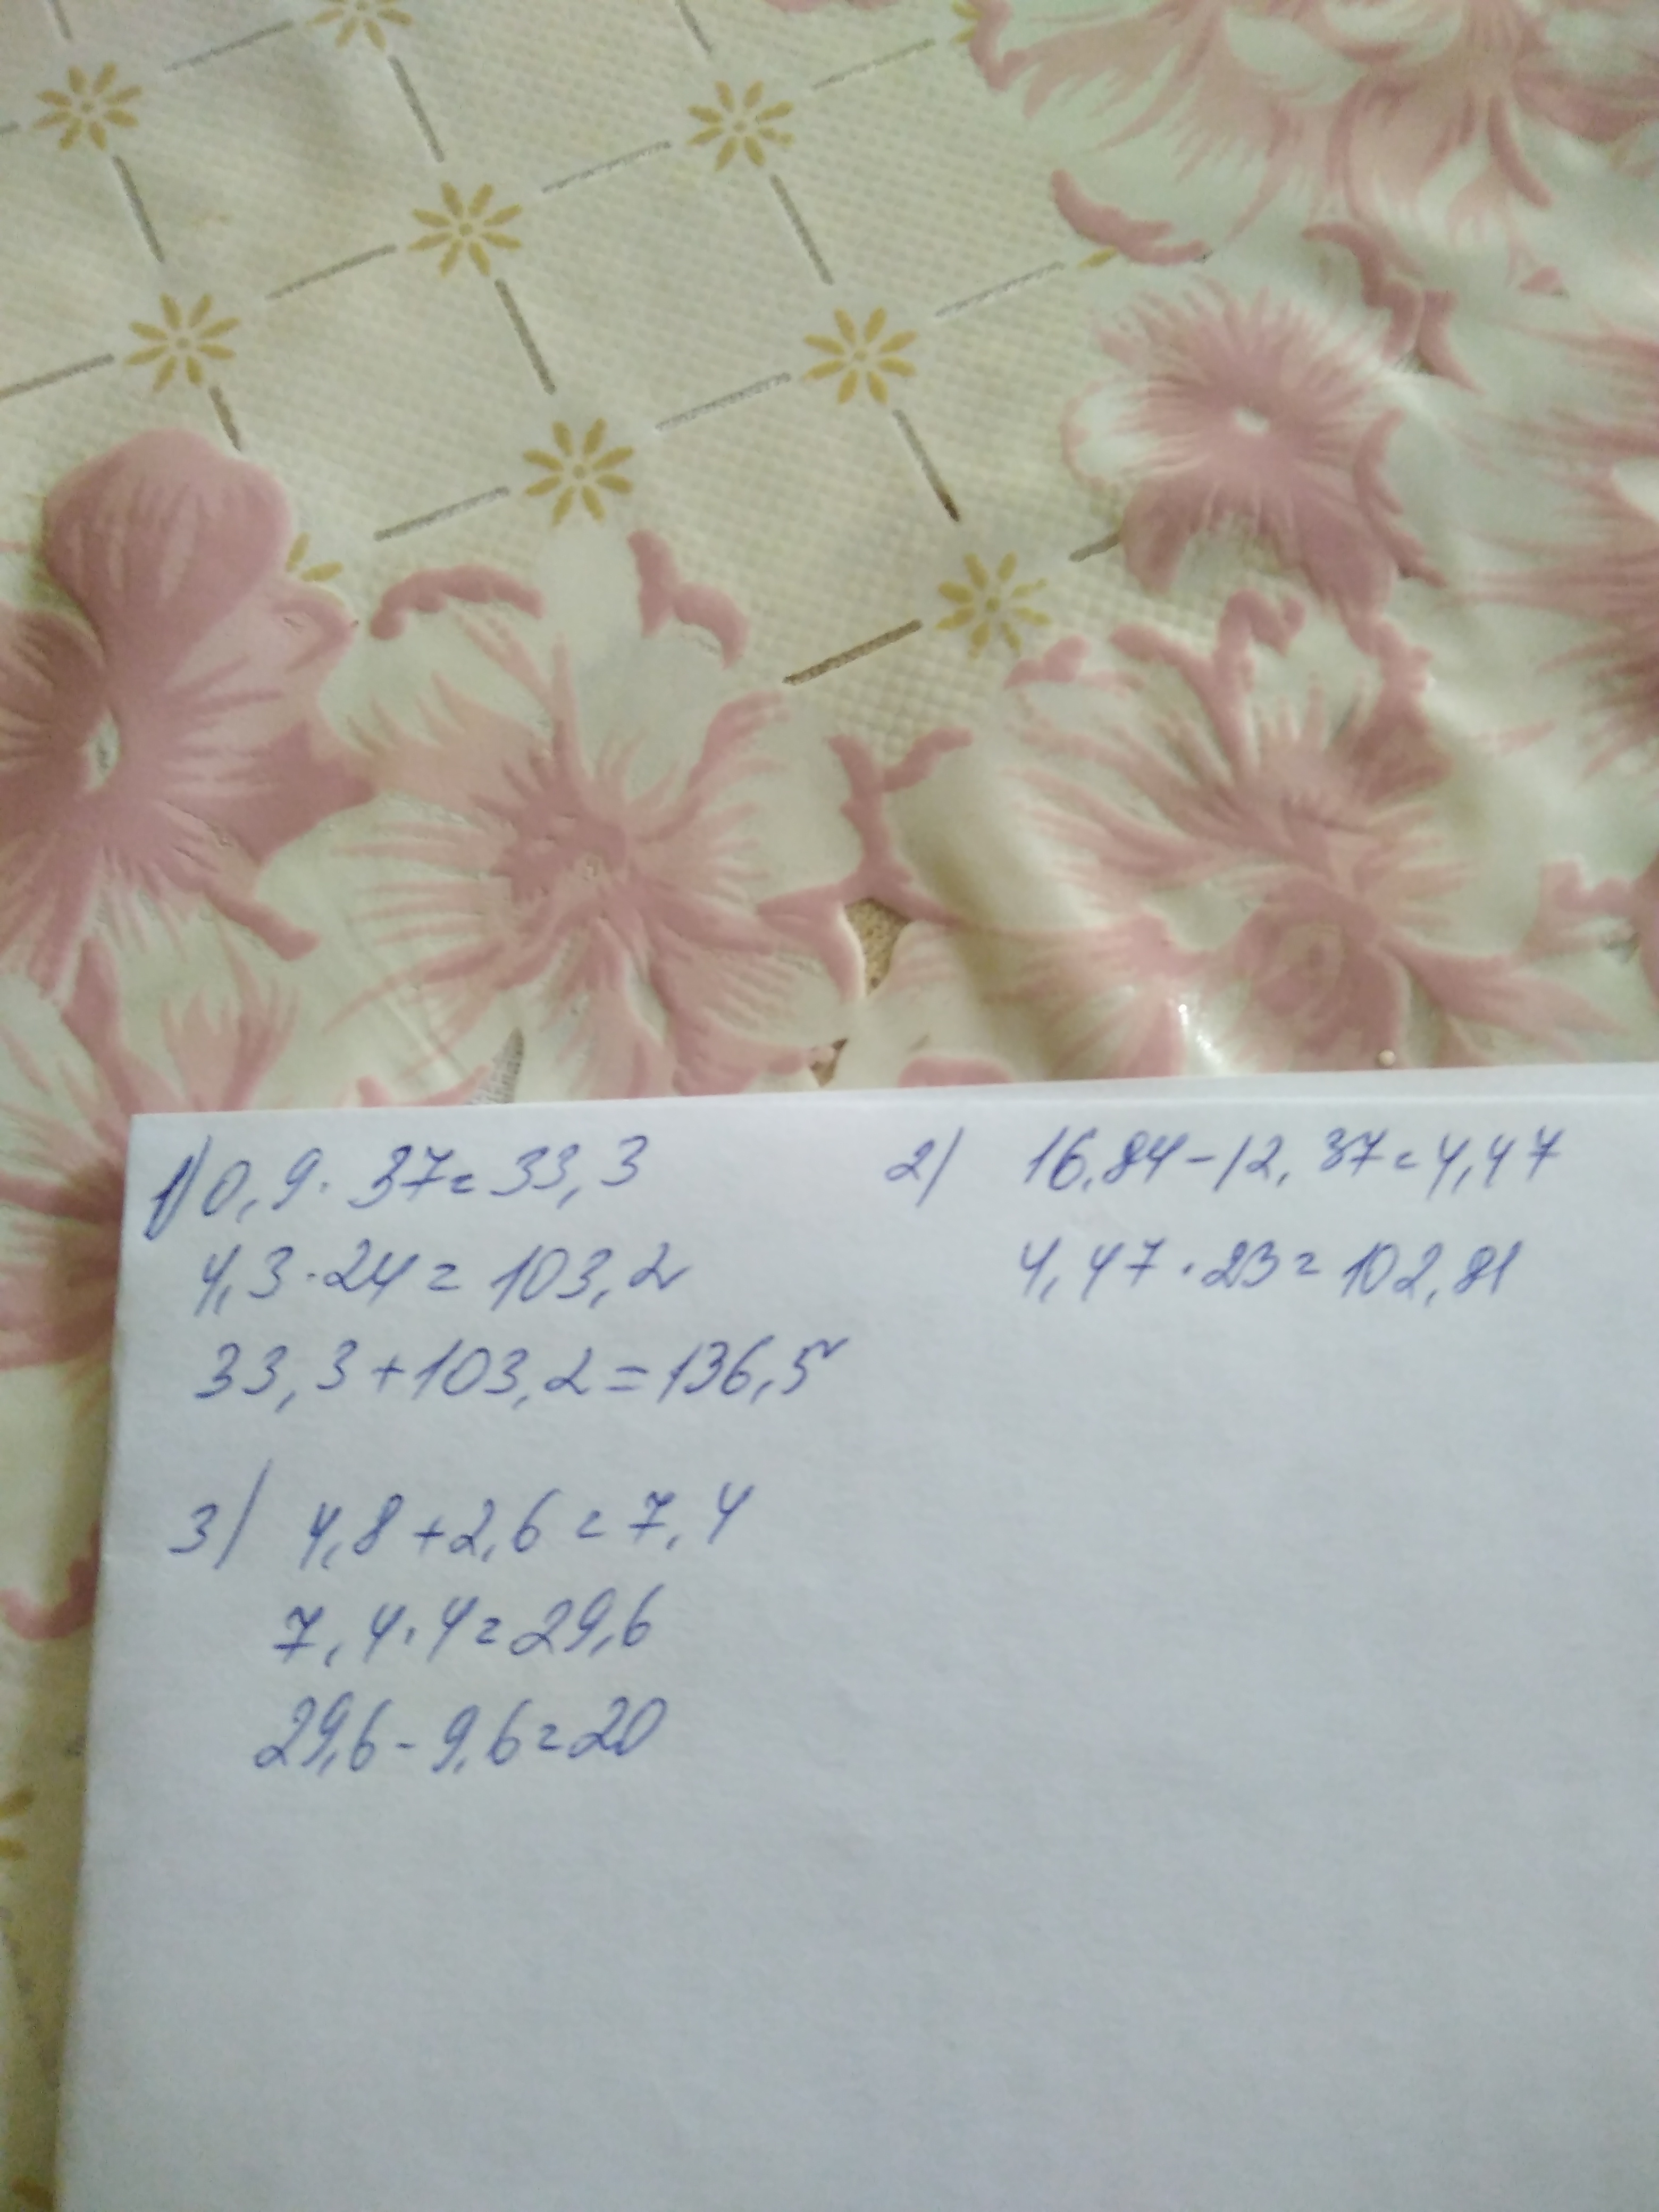 1) 0,9·37=33,3
4,3·24=103,2
33,3+103,2=136,5
2) 16,84-12,37=4,47
4,47·23=102,81
3) 4,8+2,6=7,4
7,4·4=29,6
29,6-9,6=20